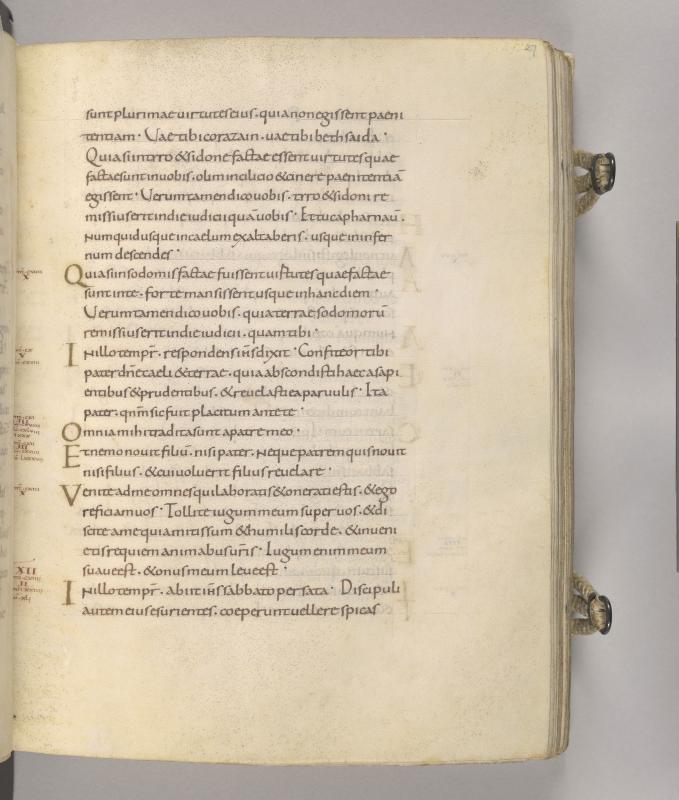 27
sunt plurimae uirtutes eius · quia non egissent paeni
tentiam · Uae tibi corazain · uae tibi bethsaida ·
Quia si in tyro & sidone factae essent uirtutes quae
factae sunt in uobis · olim in cilicio & cinere paenitentiā
egissent · Uerumtamen dico uobis · tyro & sidoni re
missius erit in die iudicii quā uobis · Et tu capharnaū ·
Numquid usque in caelum exaltaberis · usque in infer
num descendes ·
Quia si in sodomis factae fuissent uirtutes quae factae
sunt in te · forte mansissent usque in hanc diem ·
Uerumtamen dico uobis · quia terrae sodomorū
remissius erit in die iudicii · quam tibi ·
In illo tempr̄ · respondens ih̄s dixit · Confiteor tibi
pater dn̄e caeli & terrae · quia abscondisti haec a sapi
entibus & prudentibus · & reuelasti ea paruulis · Ita
pater · qm̄ sic fuit placitum ante te ·
Omnia mihi tradita sunt a patre meo ·
Et nemo nouit filiū · nisi pater · Neque patrem quis nouit
nisi filius · & cui uoluerit filius reuelare ·
Venite ad me omnes qui laboratis & onerati estis · & ego
reficiam uos · Tollite iugum meum super uos · & di
scite a me quia mitis sum & humilis corde · & inueni
etis requiem animabus ur̄is · Iugum enim meum
suaue est · & onus meum leue est ·
In illo tempr̄ · abiit ih̄s sabbato per sata · Discipuli
autem eius esurientes · coeperunt uellere spicas
X
V
X
XII
II